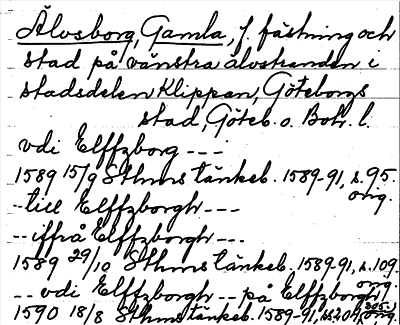 Älvsborg, Gamla, f. fästning och
stad på vänstra älvstranden i
stadsdelen Klippan, Göteborgs
stad, Göteb. o. Boh. l.
vdi Elffzborg ---
1589 15/9 Sthms tänkeb. 1589-91, s. 95.
orig.
-- till Elffzborgh ---
-- iffrå Elffzborgh ---
1589 29/10 Sthms tänkeb. 1589-91, s. 109.
orig.
-- vdi Elffzborgh -- på Elffzborgh
1590 18/8 Sthms tänkeb. 1589-91, s. orig.